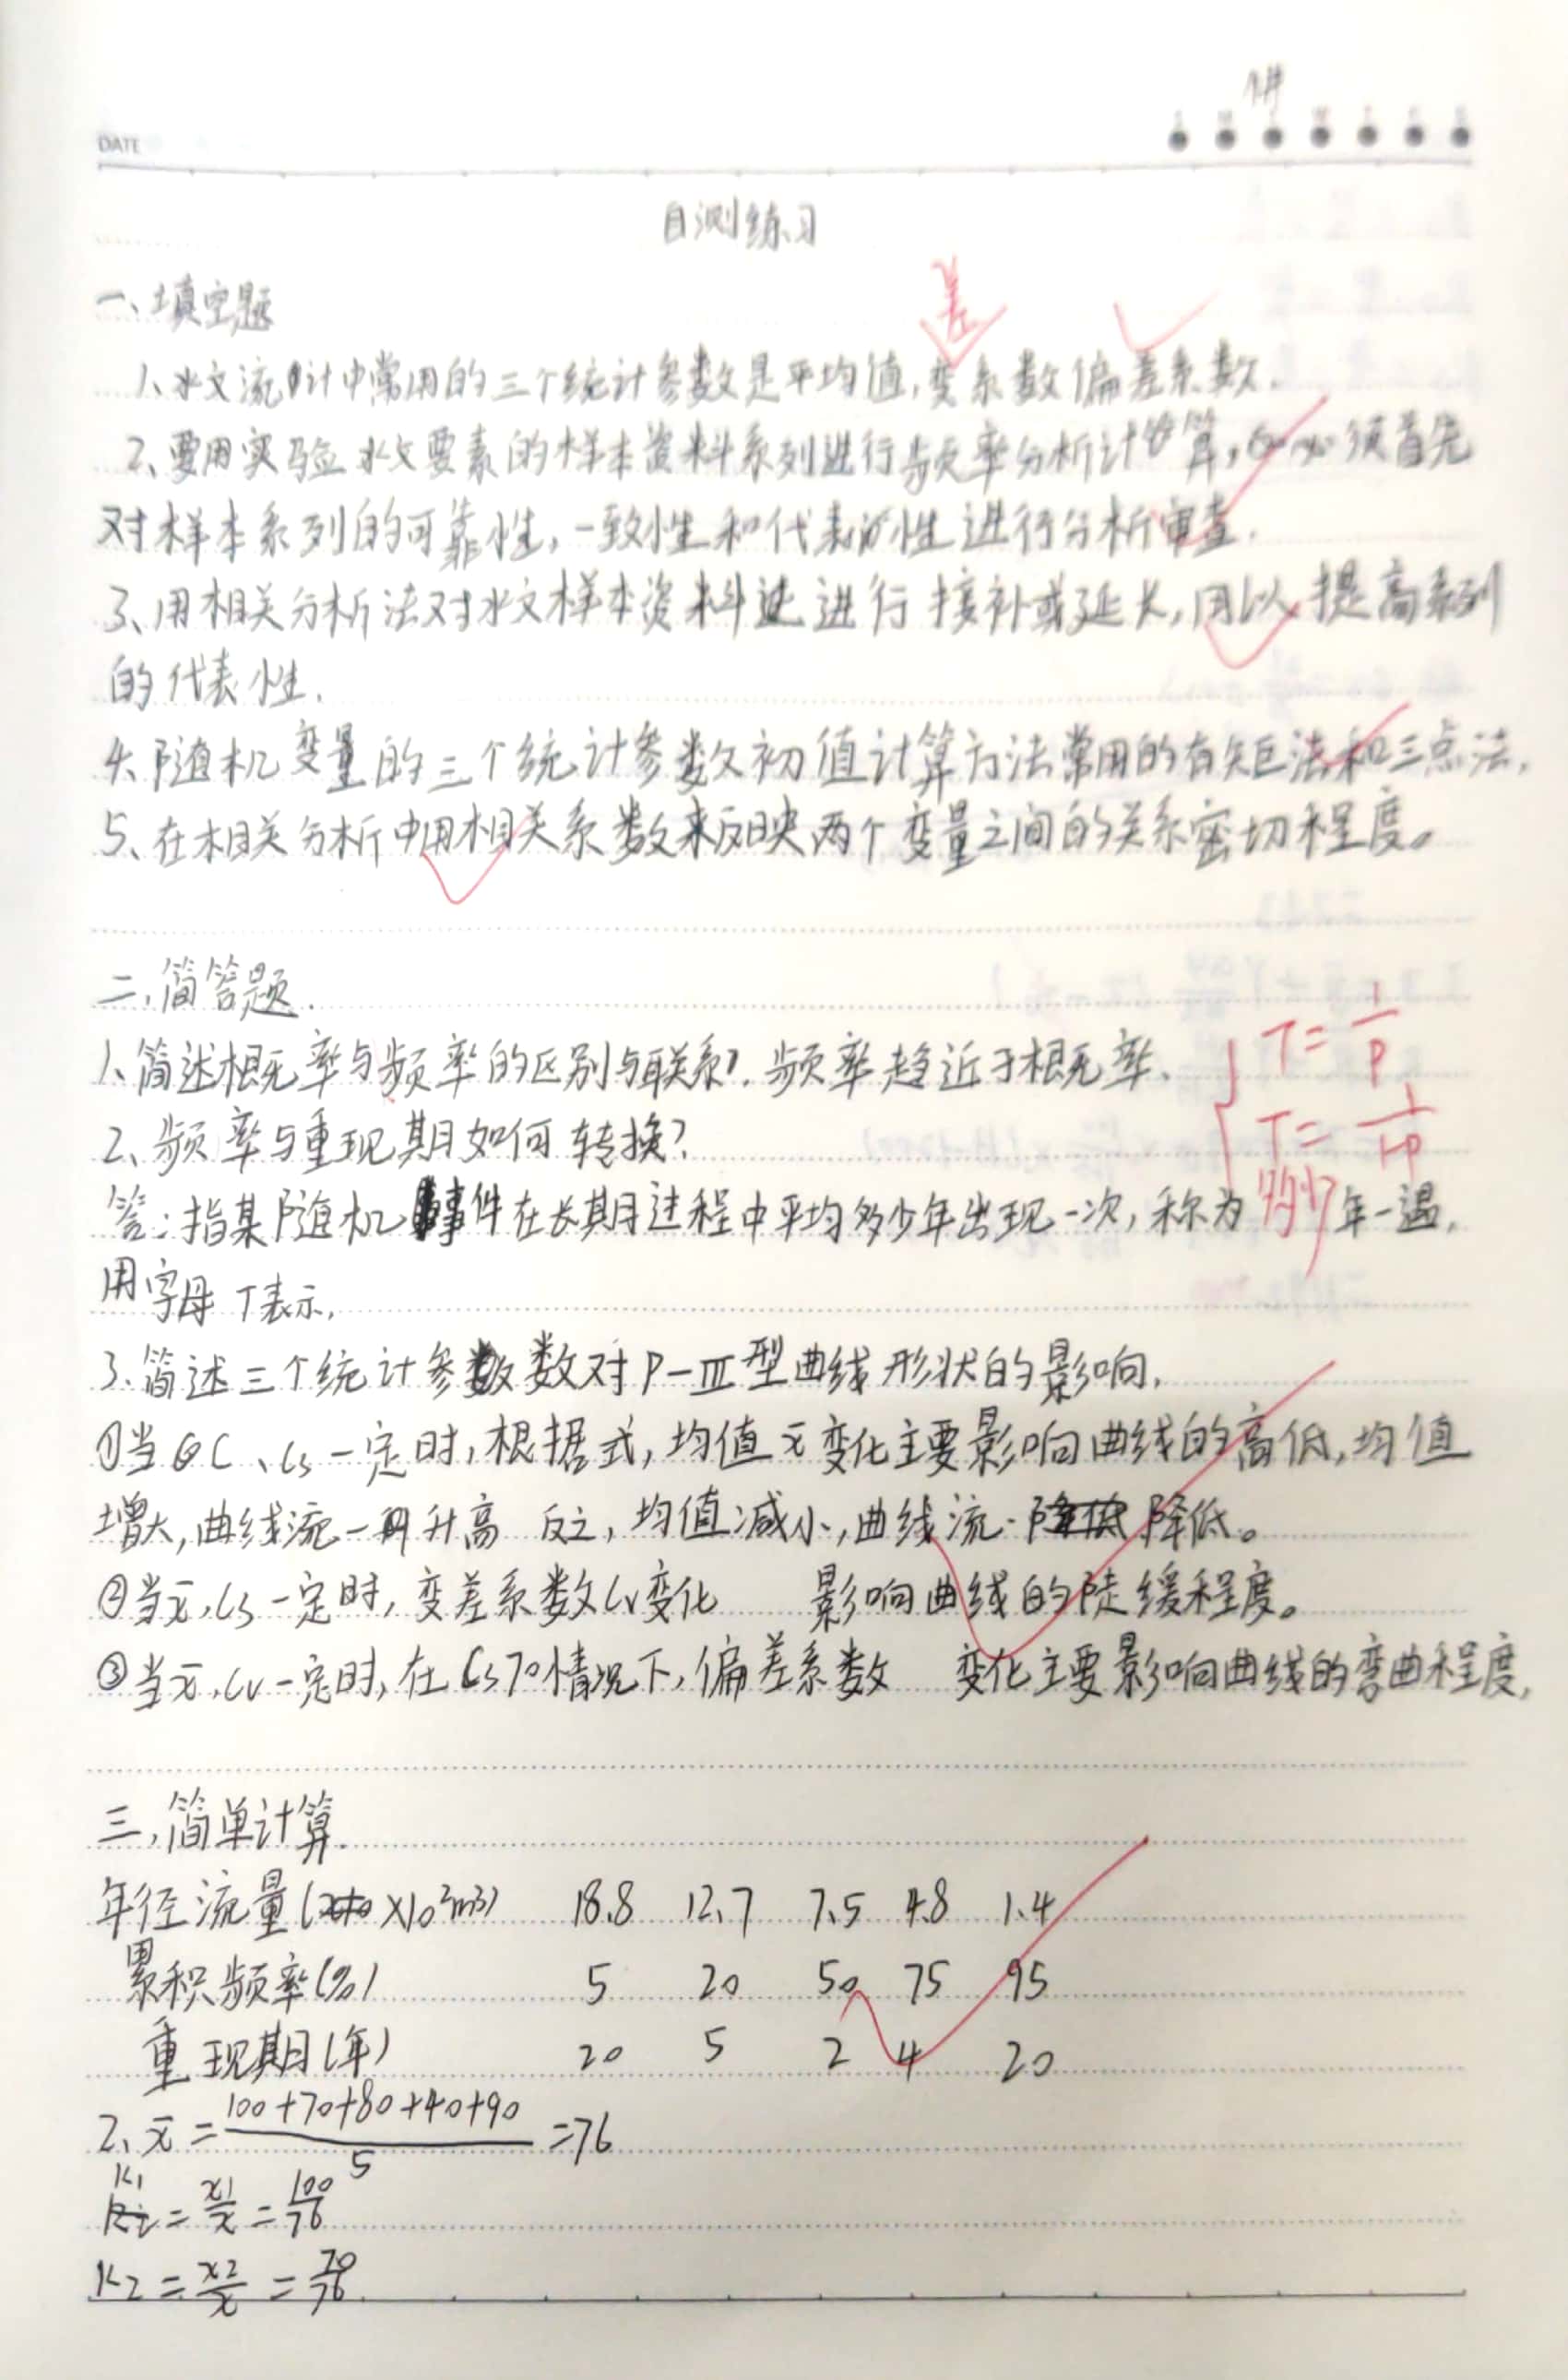 DATE
自测练习
一、填空题
差
1、水文流计中常用的三个统计参数是平均值,变系数偏差系数.
2、要用实验水文要素的样本资料系列进行频率分析计算,必须首先
对样本系列的可靠性,一致性和代表性进行分析审查.
3、用相关分析法对水文样本资料进行接补或延长,用以提高系列
的代表性.
4、随机变量的三个统计参数初值计算方法常用的有矩法和三点法,
5、在相关分析中用相关系数来反映两个变量之间的关系密切程度。
二,简答题.
1、简述概率与频率的区别与联系?.频率趋近于概率、
T=1/P
2、频率与重现期如何转换?
T=1/1-P
答:指某随机事件在长期过程中平均多少年出现一次,称为多少年一遇,
用字母T表示,
3、简述三个统计参数数对P-Ⅲ型曲线形状的影响,
①当C、Cs一定时,根据式,均值x̄变化主要影响曲线的高低,均值
增大,曲线流一升高 反之,均值减小,曲线流·降低降低。
②当x̄,Cs一定时,变差系数Cv变化 影响曲线的陡缓程度。
③当x̄,Cv一定时,在Cs>0情况下,偏差系数 变化主要影响曲线的弯曲程度,
三,简单计算.
年径流量(×10²m³) 18.8 12.7 7.5 4.8 1.4
累积频率(%) 5 20 50 75 95
重现期(年) 20 5 2 4 20
2、x̄=100+70+80+40+90/5=76
K1=x1/x̄=100/76
K2=x2/x̄=70/76